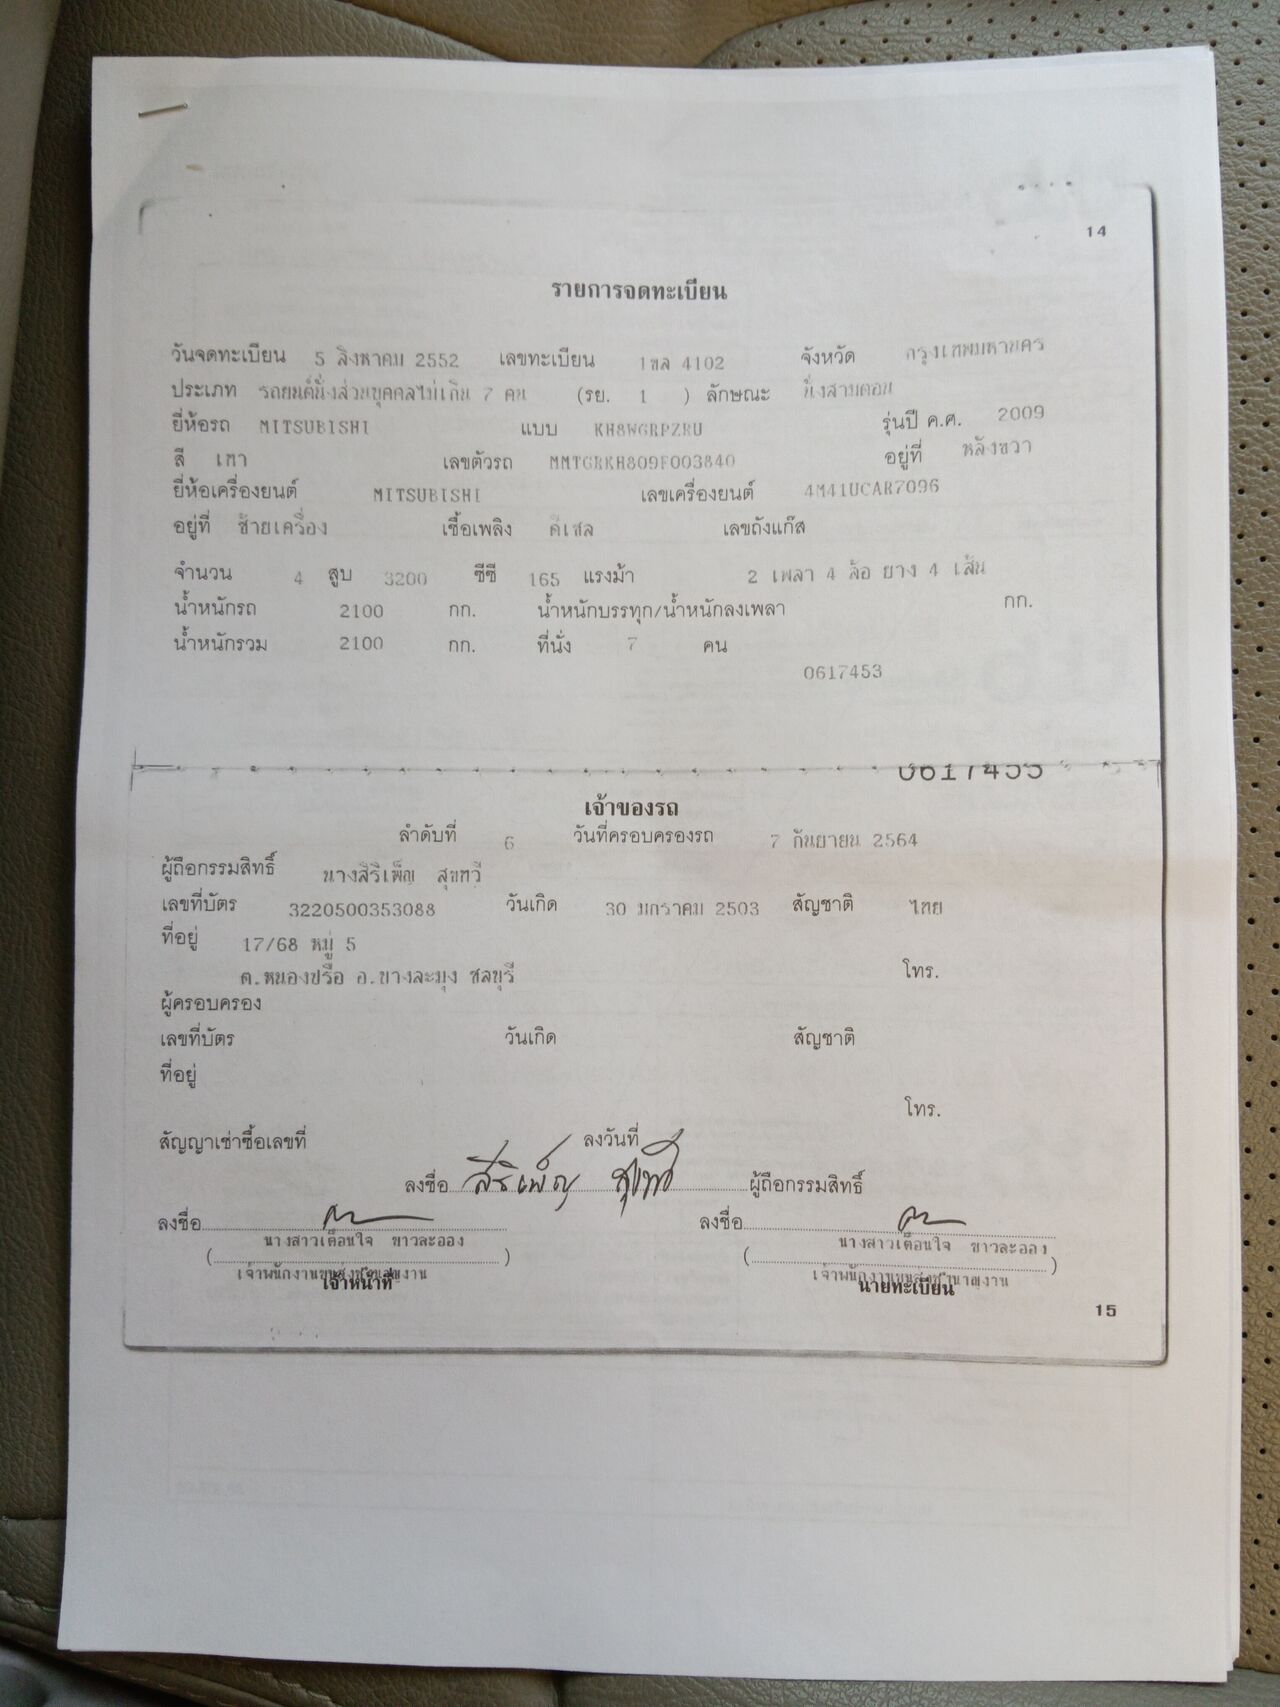 14
รายการจดทะเบียน
วันจดทะเบียน 5 สิงหาคม 2552 เลขทะเบียน 1ฬล 4102 จังหวัด กรุงเทพมหานคร
ประเภท รถยนต์นั่งส่วนบุคคลไม่เกิน 7 คน (รย. 1 ) ลักษณะ นั่งสามตอน
ยี่ห้อรถ MITSUBISHI แบบ KH8WGRPZRU รุ่นปี ค.ศ. 2009
สี เทา เลขตัวรถ MMTGRKH809F003840 อยู่ที่ หลังขวา
ยี่ห้อเครื่องยนต์ MITSUBISHI เลขเครื่องยนต์ 4M41UCAR7096
อยู่ที่ ซ้ายเครื่อง เชื้อเพลิง ดีเซล เลขถังแก๊ส
จำนวน 4 สูบ 3200 ซีซี 165 แรงม้า 2 เพลา 4 ล้อ ยาง 4 เส้น
น้ำหนักรถ 2100 กก. น้ำหนักบรรทุก/น้ำหนักลงเพลา กก.
น้ำหนักรวม 2100 กก. ที่นั่ง 7 คน
0617453
0617453
เจ้าของรถ
ลำดับที่ 6 วันที่ครอบครองรถ 7 กันยายน 2564
ผู้ถือกรรมสิทธิ์ นางสิริเพ็ญ สุขทวี
เลขที่บัตร 3220500353088 วันเกิด 30 มกราคม 2503 สัญชาติ ไทย
ที่อยู่ 17/68 หมู่ 5
ต.หนองปรือ อ.บางละมุง ชลบุรี โทร.
ผู้ครอบครอง
เลขที่บัตร วันเกิด สัญชาติ
ที่อยู่
โทร.
สัญญาเช่าซื้อเลขที่ ลงวันที่
ลงชื่อ สิริเพ็ญ สุขทวี ผู้ถือกรรมสิทธิ์
ลงชื่อ ลงชื่อ
(นางสาวเตือนใจ ขาวละออง) (นางสาวเตือนใจ ขาวละออง)
เจ้าพนักงานขนส่งชำนาญงาน เจ้าพนักงานขนส่งชำนาญงาน
เจ้าหน้าที่ นายทะเบียน
15